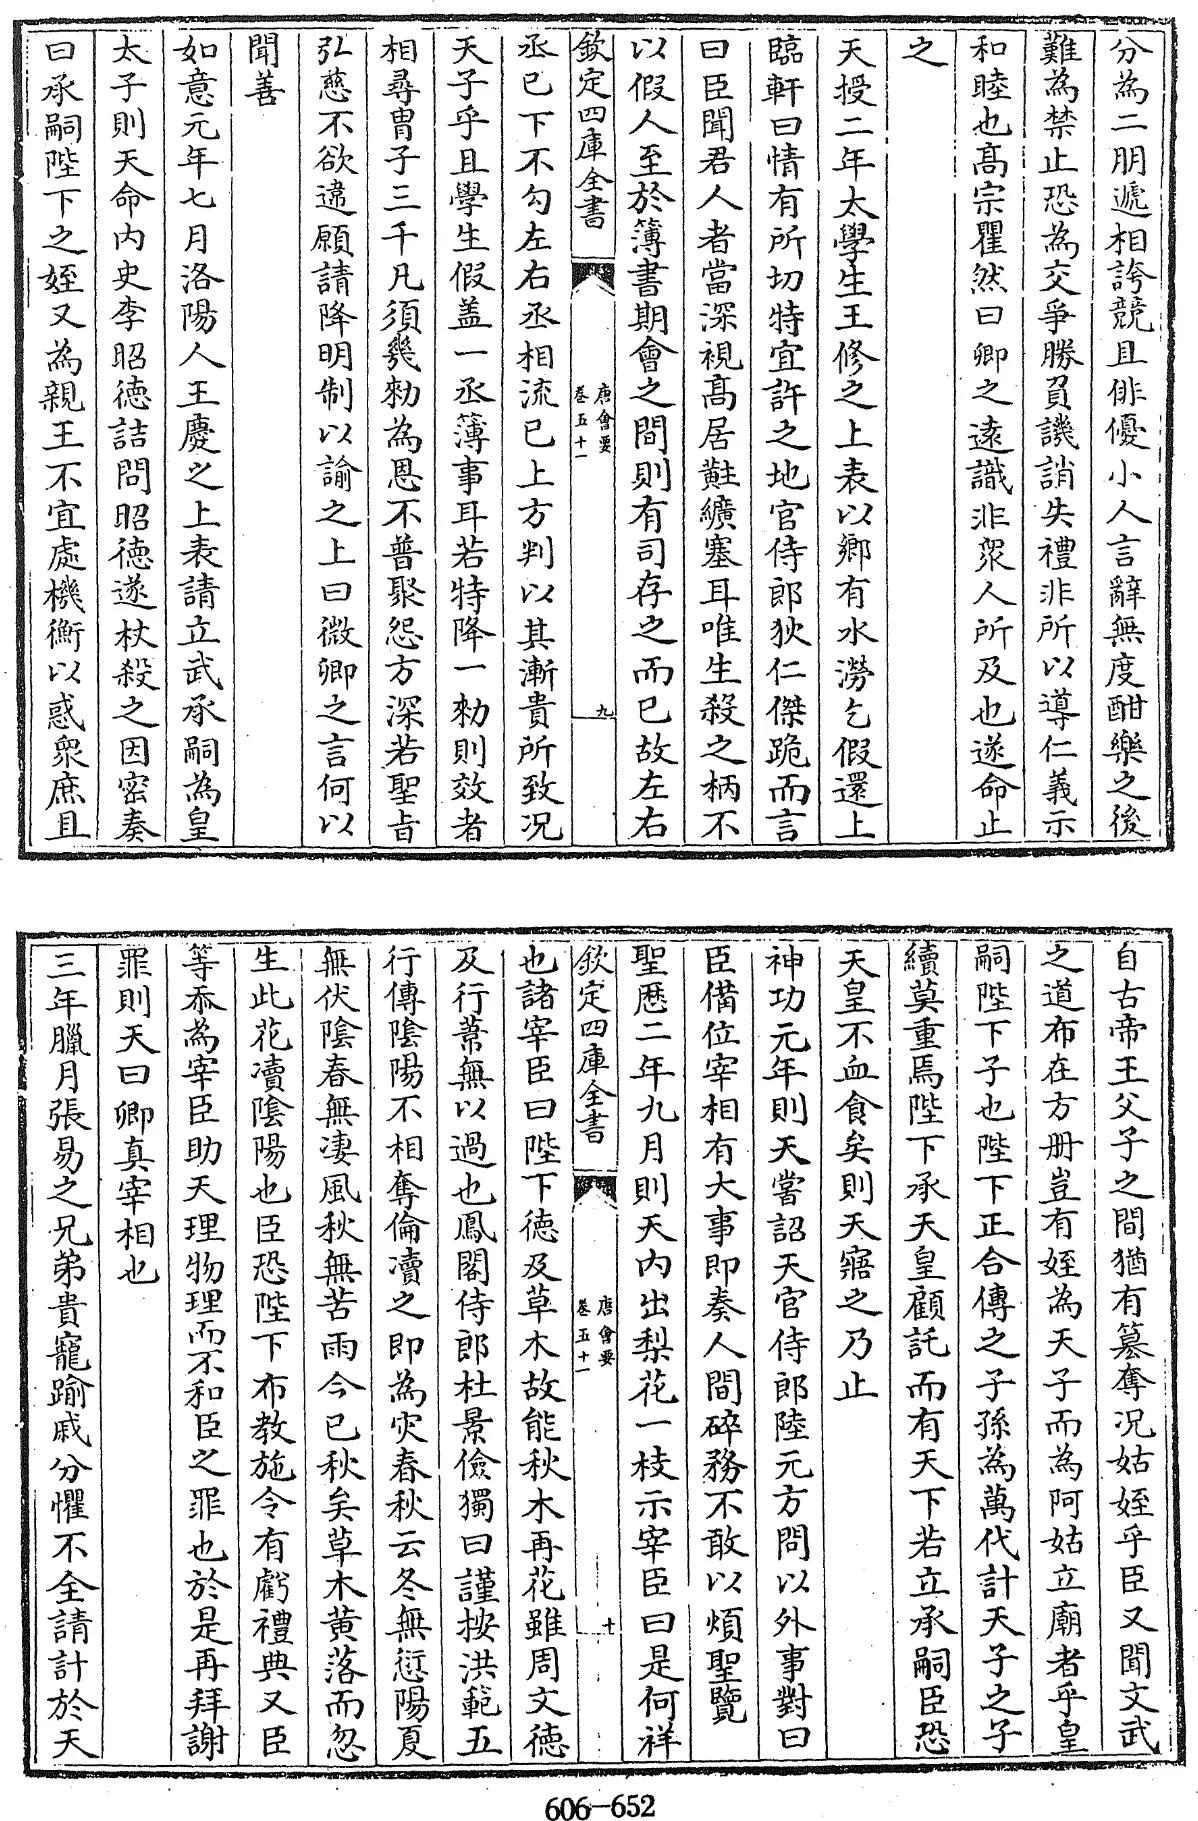 分為二朋遞相誇競且俳優小人言辭無度酣樂之後
難為禁止恐為交爭勝負譏誚失禮非所以導仁義示
和睦也髙宗瞿然曰卿之遠識非衆人所及也遂命止
之
天授二年太學生王修之上表以鄉有水澇乞假還上
臨軒曰情有所切特宜許之地官侍郎狄仁傑跪而言
曰臣聞君人者當深視髙居黈纊塞耳唯生殺之柄不
以假人至於簿書期會之間則有司存之而已故左右
欽定四庫全書
唐會要
卷五十一
九
丞已下不勾左右丞相流已上方判以其漸貴所致况
天子乎且學生假盖一丞簿事耳若特降一勑則效者
相尋胄子三千凡須幾勑為恩不普聚怨方深若聖旨
弘慈不欲違願請降明制以諭之上曰微卿之言何以
聞善
如意元年七月洛陽人王慶之上表請立武承嗣為皇
太子則天命内史李昭德詰問昭德遂杖殺之因密奏
曰承嗣陛下之姪又為親王不宜處機衡以惑衆庶且
自古帝王父子之間猶有簒奪况姑姪乎臣又聞文武
之道布在方册豈有姪為天子而為阿姑立廟者乎皇
嗣陛下子也陛下正合傳之子孫為萬代計天子之子
續莫重焉陛下承天皇顧託而有天下若立承嗣臣恐
天皇不血食矣則天寤之乃止
神功元年則天嘗詔天官侍郎陸元方問以外事對曰
臣備位宰相有大事即奏人間碎務不敢以煩聖覽
聖厯二年九月則天内出梨花一枝示宰臣曰是何祥
欽定四庫全書
唐會要
卷五十一
十
也諸宰臣曰陛下德及草木故能秋木再花雖周文德
及行葦無以過也鳳閣侍郎杜景儉獨曰謹按洪範五
行傳隂陽不相奪倫瀆之即為灾春秋云冬無愆陽夏
無伏隂春無凄風秋無苦雨今已秋矣草木黄落而忽
生此花瀆隂陽也臣恐陛下布教施令有虧禮典又臣
等忝為宰臣助天理物理而不和臣之罪也於是再拜謝
罪則天曰卿真宰相也
三年臘月張易之兄弟貴寵踰戚分懼不全請計於天
606-652